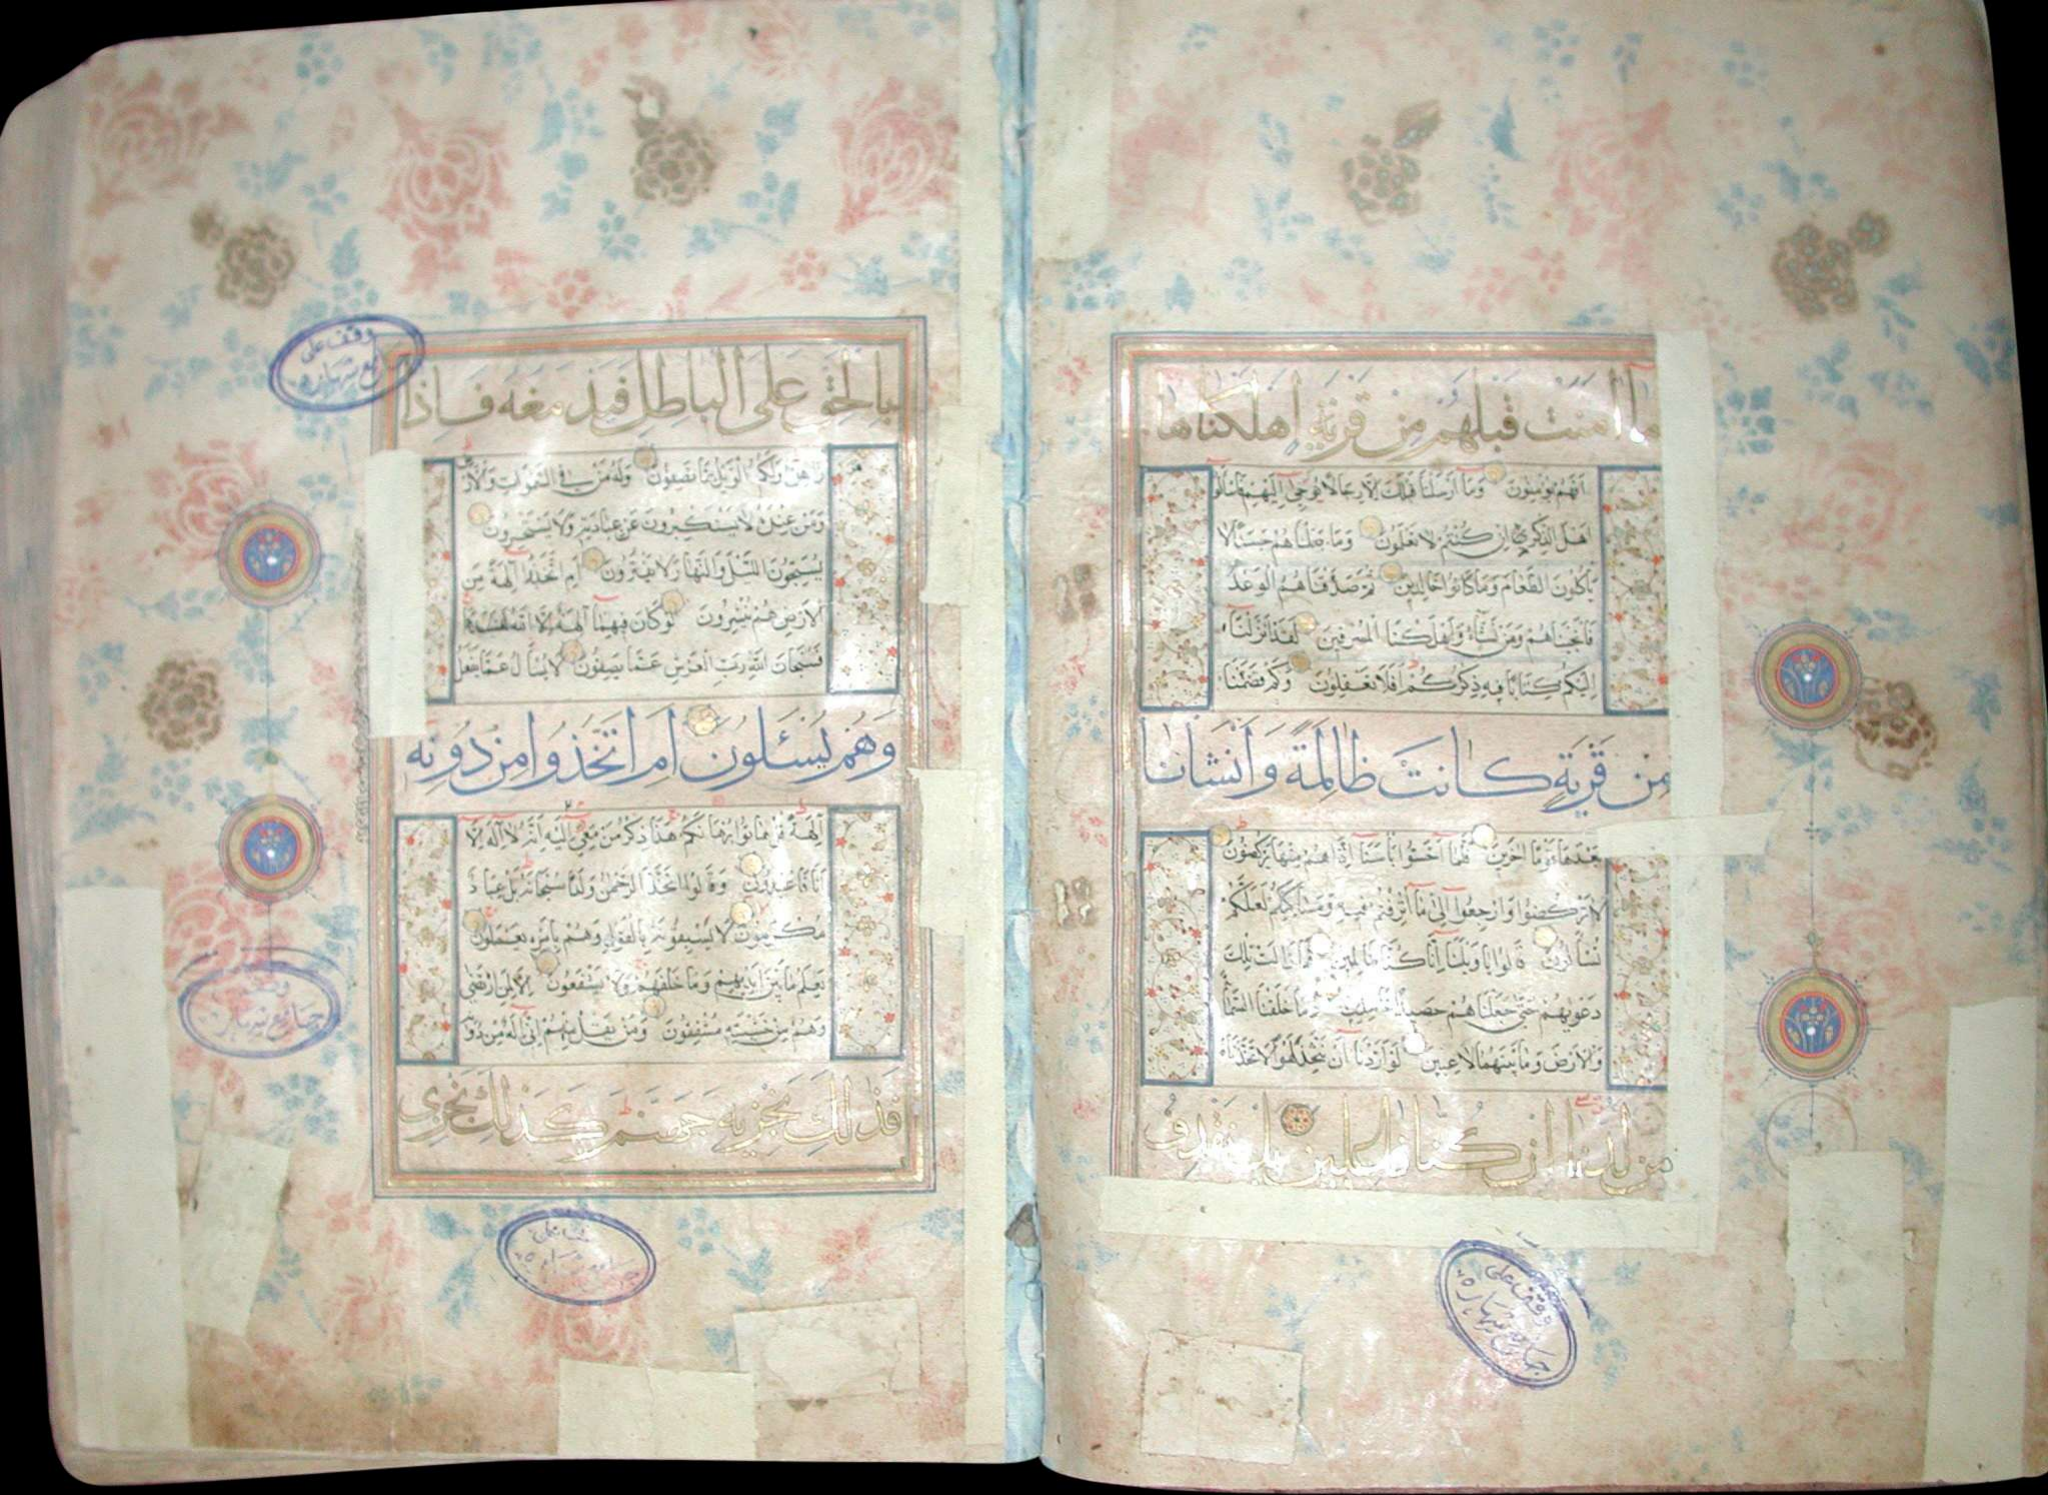 ما امنت قبلهم من قرية اهلكناها
افهم يؤمنون وما ارسلنا قبلك الا رجالا نوحي اليهم فسئلوا
اهل الذكر ان كنتم لا تعلمون وما جعلناهم جسدا لا
ياكلون الطعام وما كانوا خالدين ثم صدقناهم الوعد
فانجيناهم ومن نشاء واهلكنا المسرفين لقد انزلنا
اليكم كتابا فيه ذكركم افلا تعقلون وكم قصمنا
من قرية كانت ظالمة وانشانا
بعدها قوما اخرين فلما احسوا باسنا اذا هم منها يركضون
لا تركضوا وارجعوا الى ما اترفتم فيه ومساكنكم لعلكم
تسألون قالوا يا ويلنا انا كنا ظالمين فما زالت تلك
دعويهم حتى جعلناهم حصيدا خامدين وما خلقنا السماء
والارض وما بينهما لاعبين لو اردنا ان نتخذ لهوا لاتخذناه
من لدنا ان كنا فاعلين بل نقذف
وقف على
جامع شهاره
بالحق على الباطل فيدمغه فاذا
زاهق ولكم الويل مما تصفون وله من في السموات والارض
ومن عنده لا يستكبرون عن عبادته ولا يستحسرون
يسبحون الليل والنهار لا يفترون ام اتخذوا الهة من
الارض هم ينشرون لو كان فيهما الهة الا الله لفسدتا
فسبحان الله رب العرش عما يصفون لا يسأل عما يفعل
وهم يسئلون ام اتخذوا من دونه
الهة قل هاتوا برهانكم هذا ذكر من معي اليه انه لا اله الا
انا فاعبدون وقالوا اتخذ الرحمن ولدا سبحانه بل عباد
مكرمون لا يسبقونه بالقول وهم بامره يعملون
يعلم ما بين ايديهم وما خلفهم ولا يشفعون الا لمن ارتضى
وهم من خشيته مشفقون ومن يقل منهم اني اله من دونه
فذلك نجزيه جهنم كذلك نجزي
وقف على
جامع شهاره
وقف
جامع شهاره